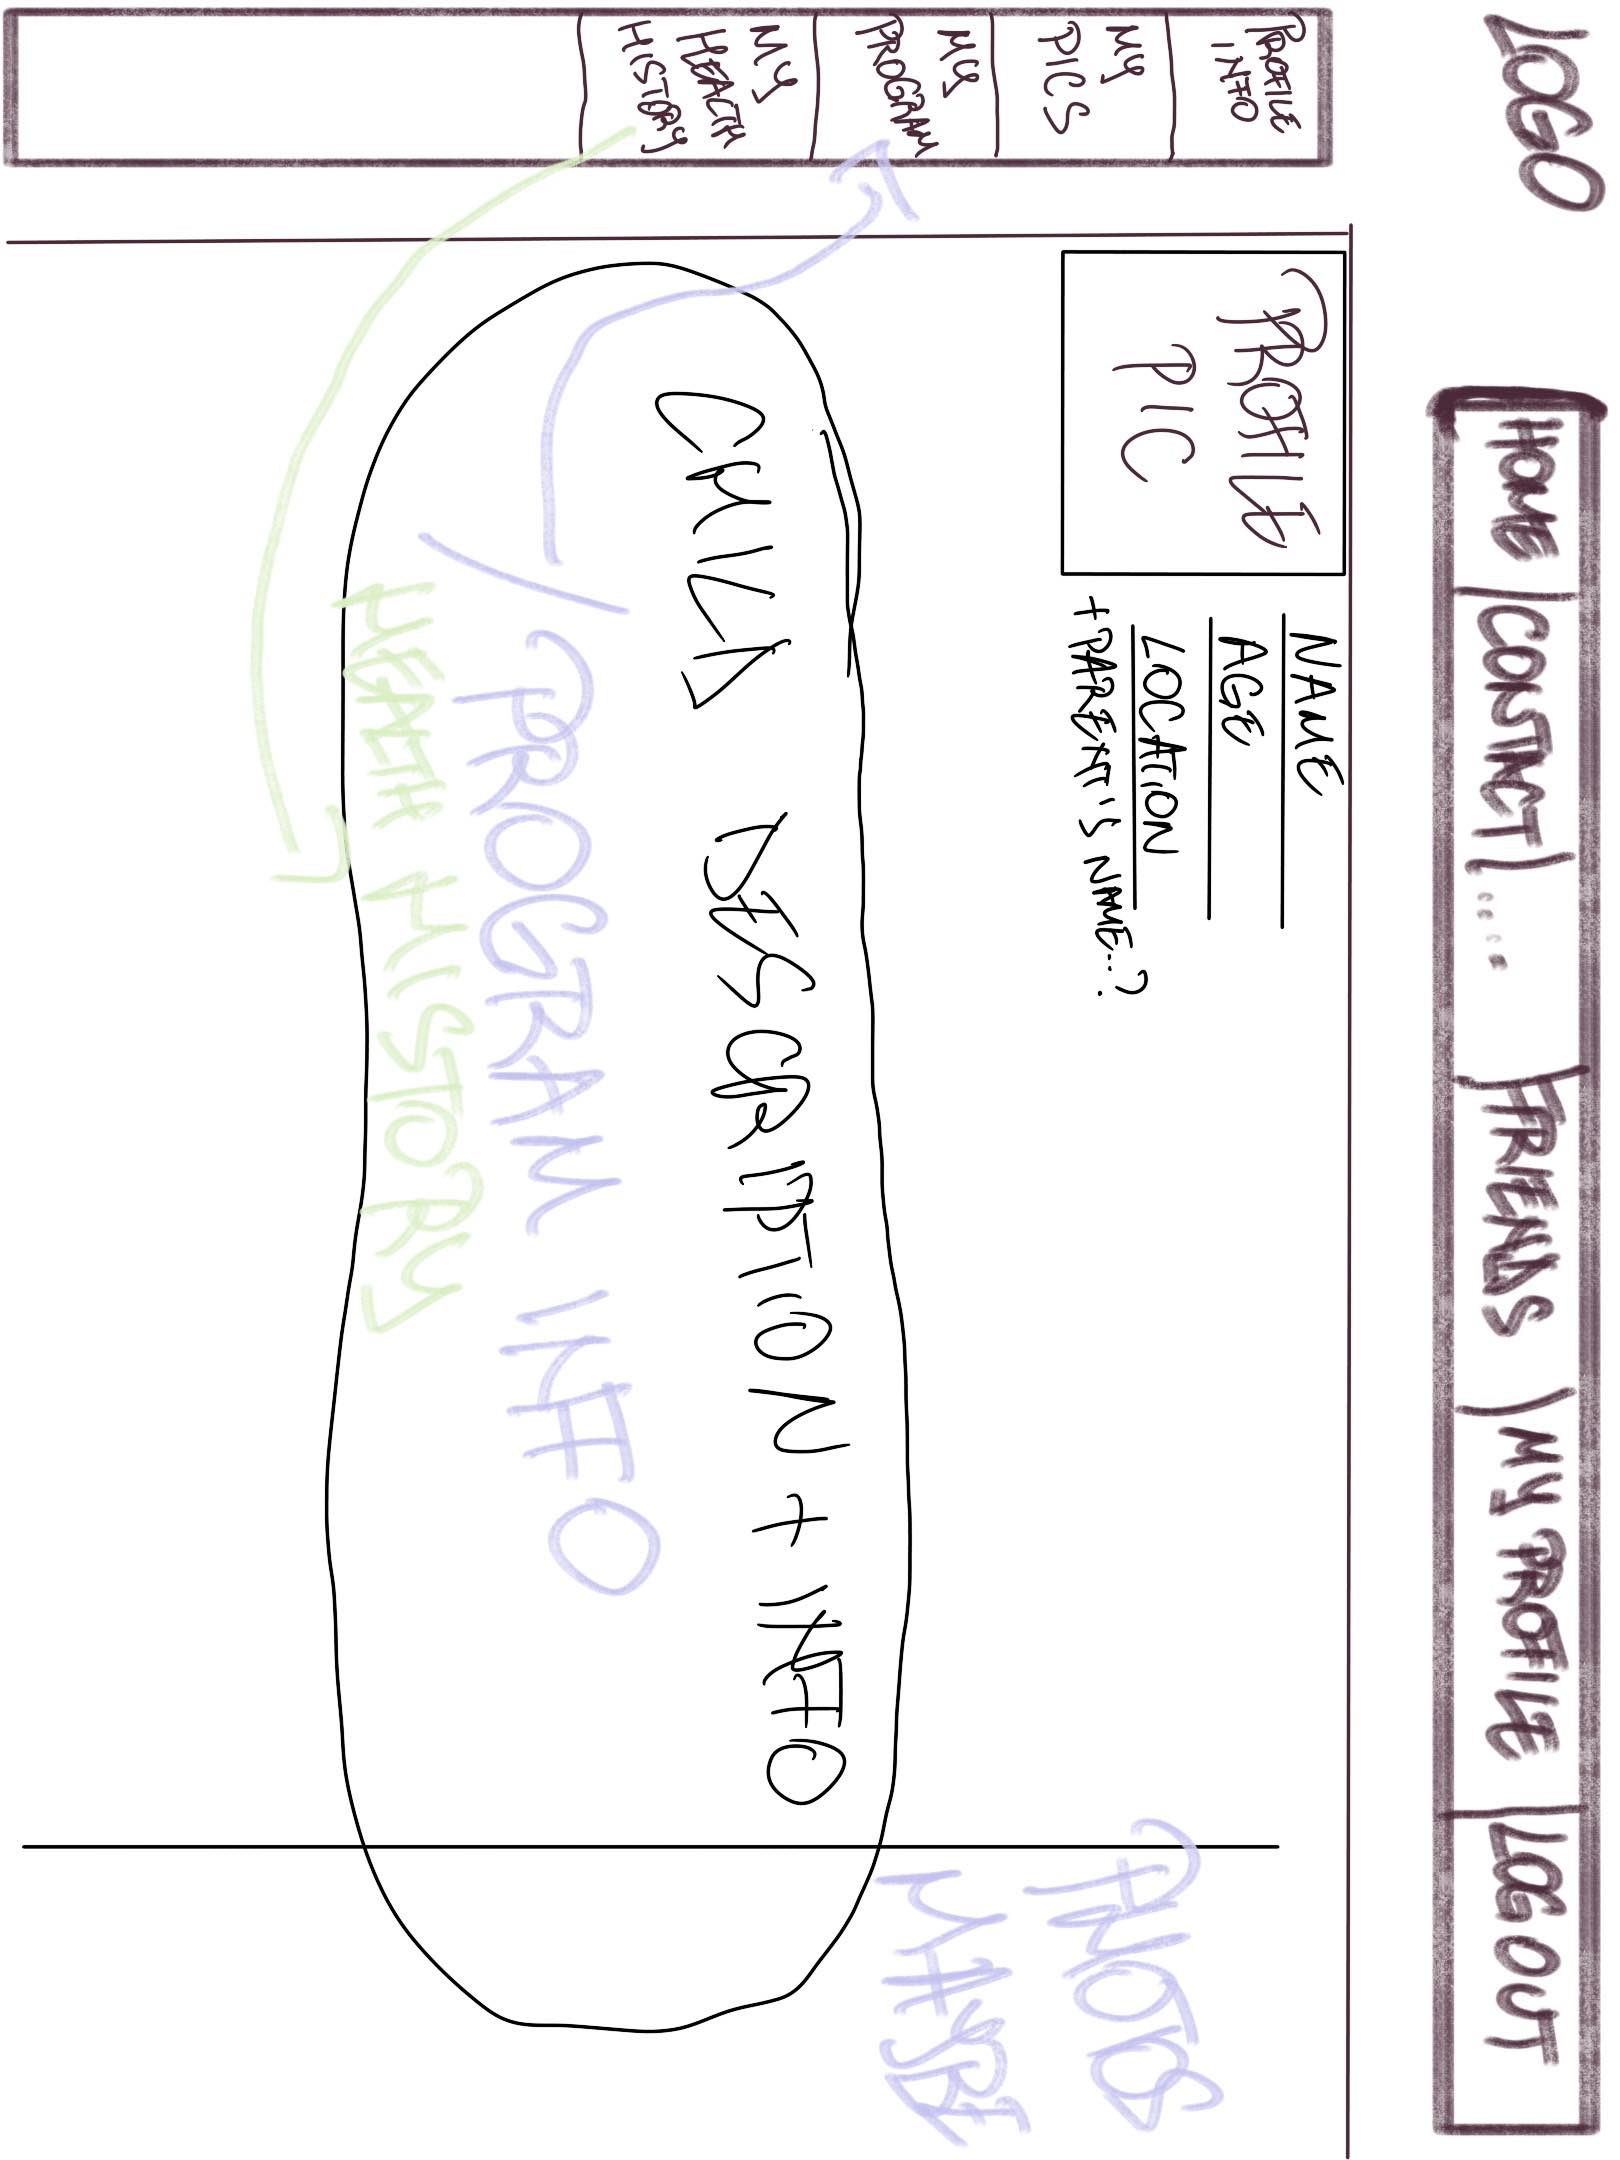 LOGO
HOME CONTACT ..... FRIENDS MY PROFILE LOG OUT
PROFILE
INFO
MY
PICS
MY
PROGRAM
MY
HEALTH
HISTORY
PROFILE
PIC
NAME
AGE
LOCATION
+ PARENT'S NAME..?
PHOTOS
MAYBE
CHILD DESCRIPTION + INFO
/ PROGRAM INFO
HEALTH HISTORY